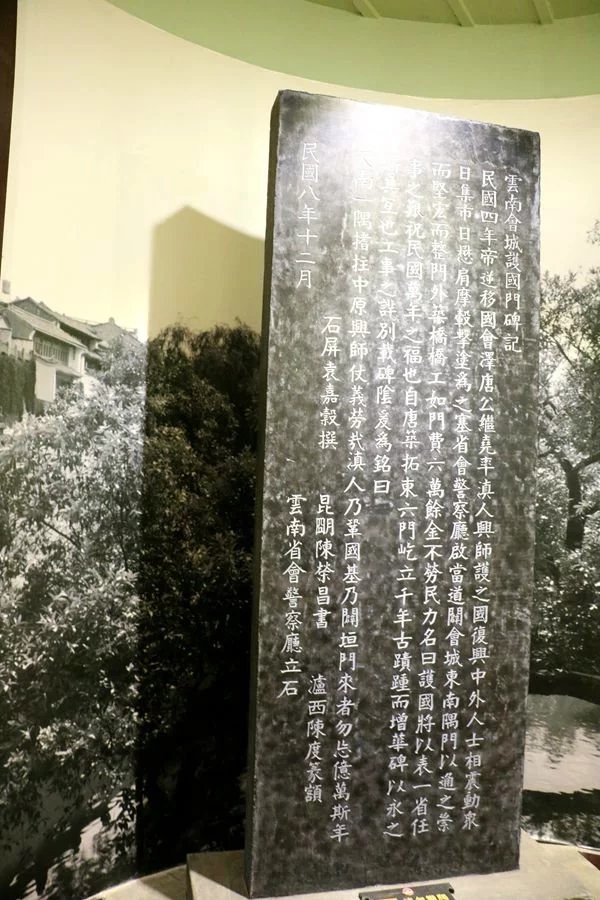 雲南會城護國門碑記
民國四年帝逆移國會澤唐公繼堯率滇人興師護之國復興中外人士相震動來
日集市日懋肩摩轂擊塗為之塞省會警察廳啟當道闢會城東南隅門以通之崇
而堅宏而整門外築橋橋工如門費六萬餘金不勞民力名曰護國將以表一省任
事之艱祝民國萬年之福也自唐築拓東六門屹立千年古蹟踵而增華碑以永之
互也工事之詳別載碑陰爰為銘曰
南一隅揩拄中原興師仗義勞哉滇人乃鞏國基乃闢垣門來者勿忘億萬斯年
石屏袁嘉穀撰 昆明陳榮昌書 瀘西陳度篆額
民國八年十二月 雲南省會警察廳立石